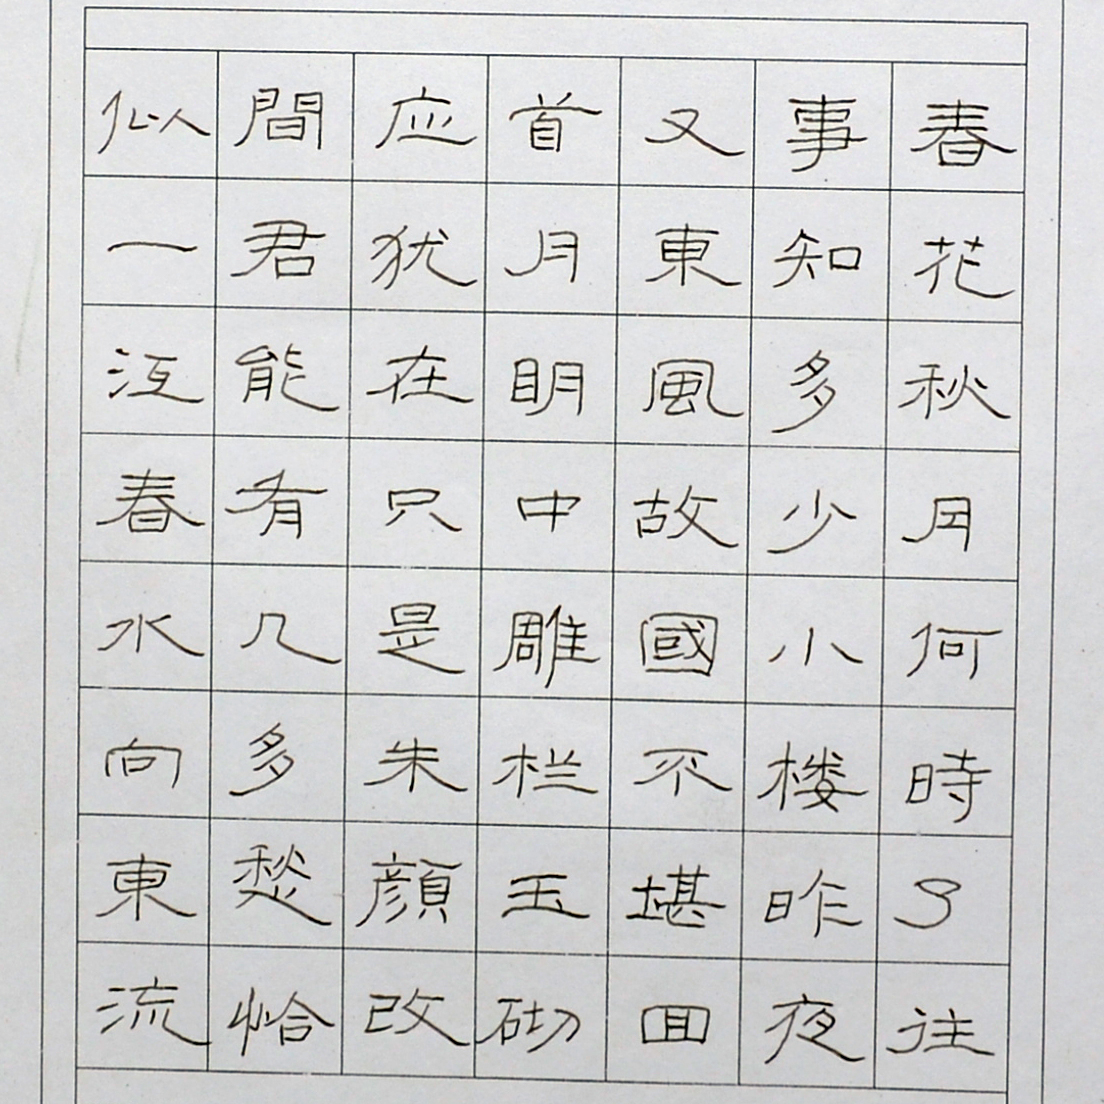 春花秋月何時了往
事知多少小楼昨夜
又東風故國不堪回
首月明中雕栏玉砌
应犹在只是朱顔改
間君能有几多愁恰
似一江春水向東流